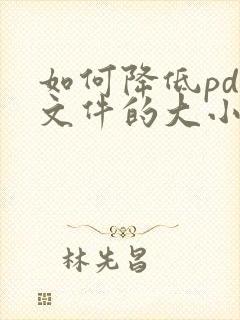 如何降低pd
文件的大小
林先昌